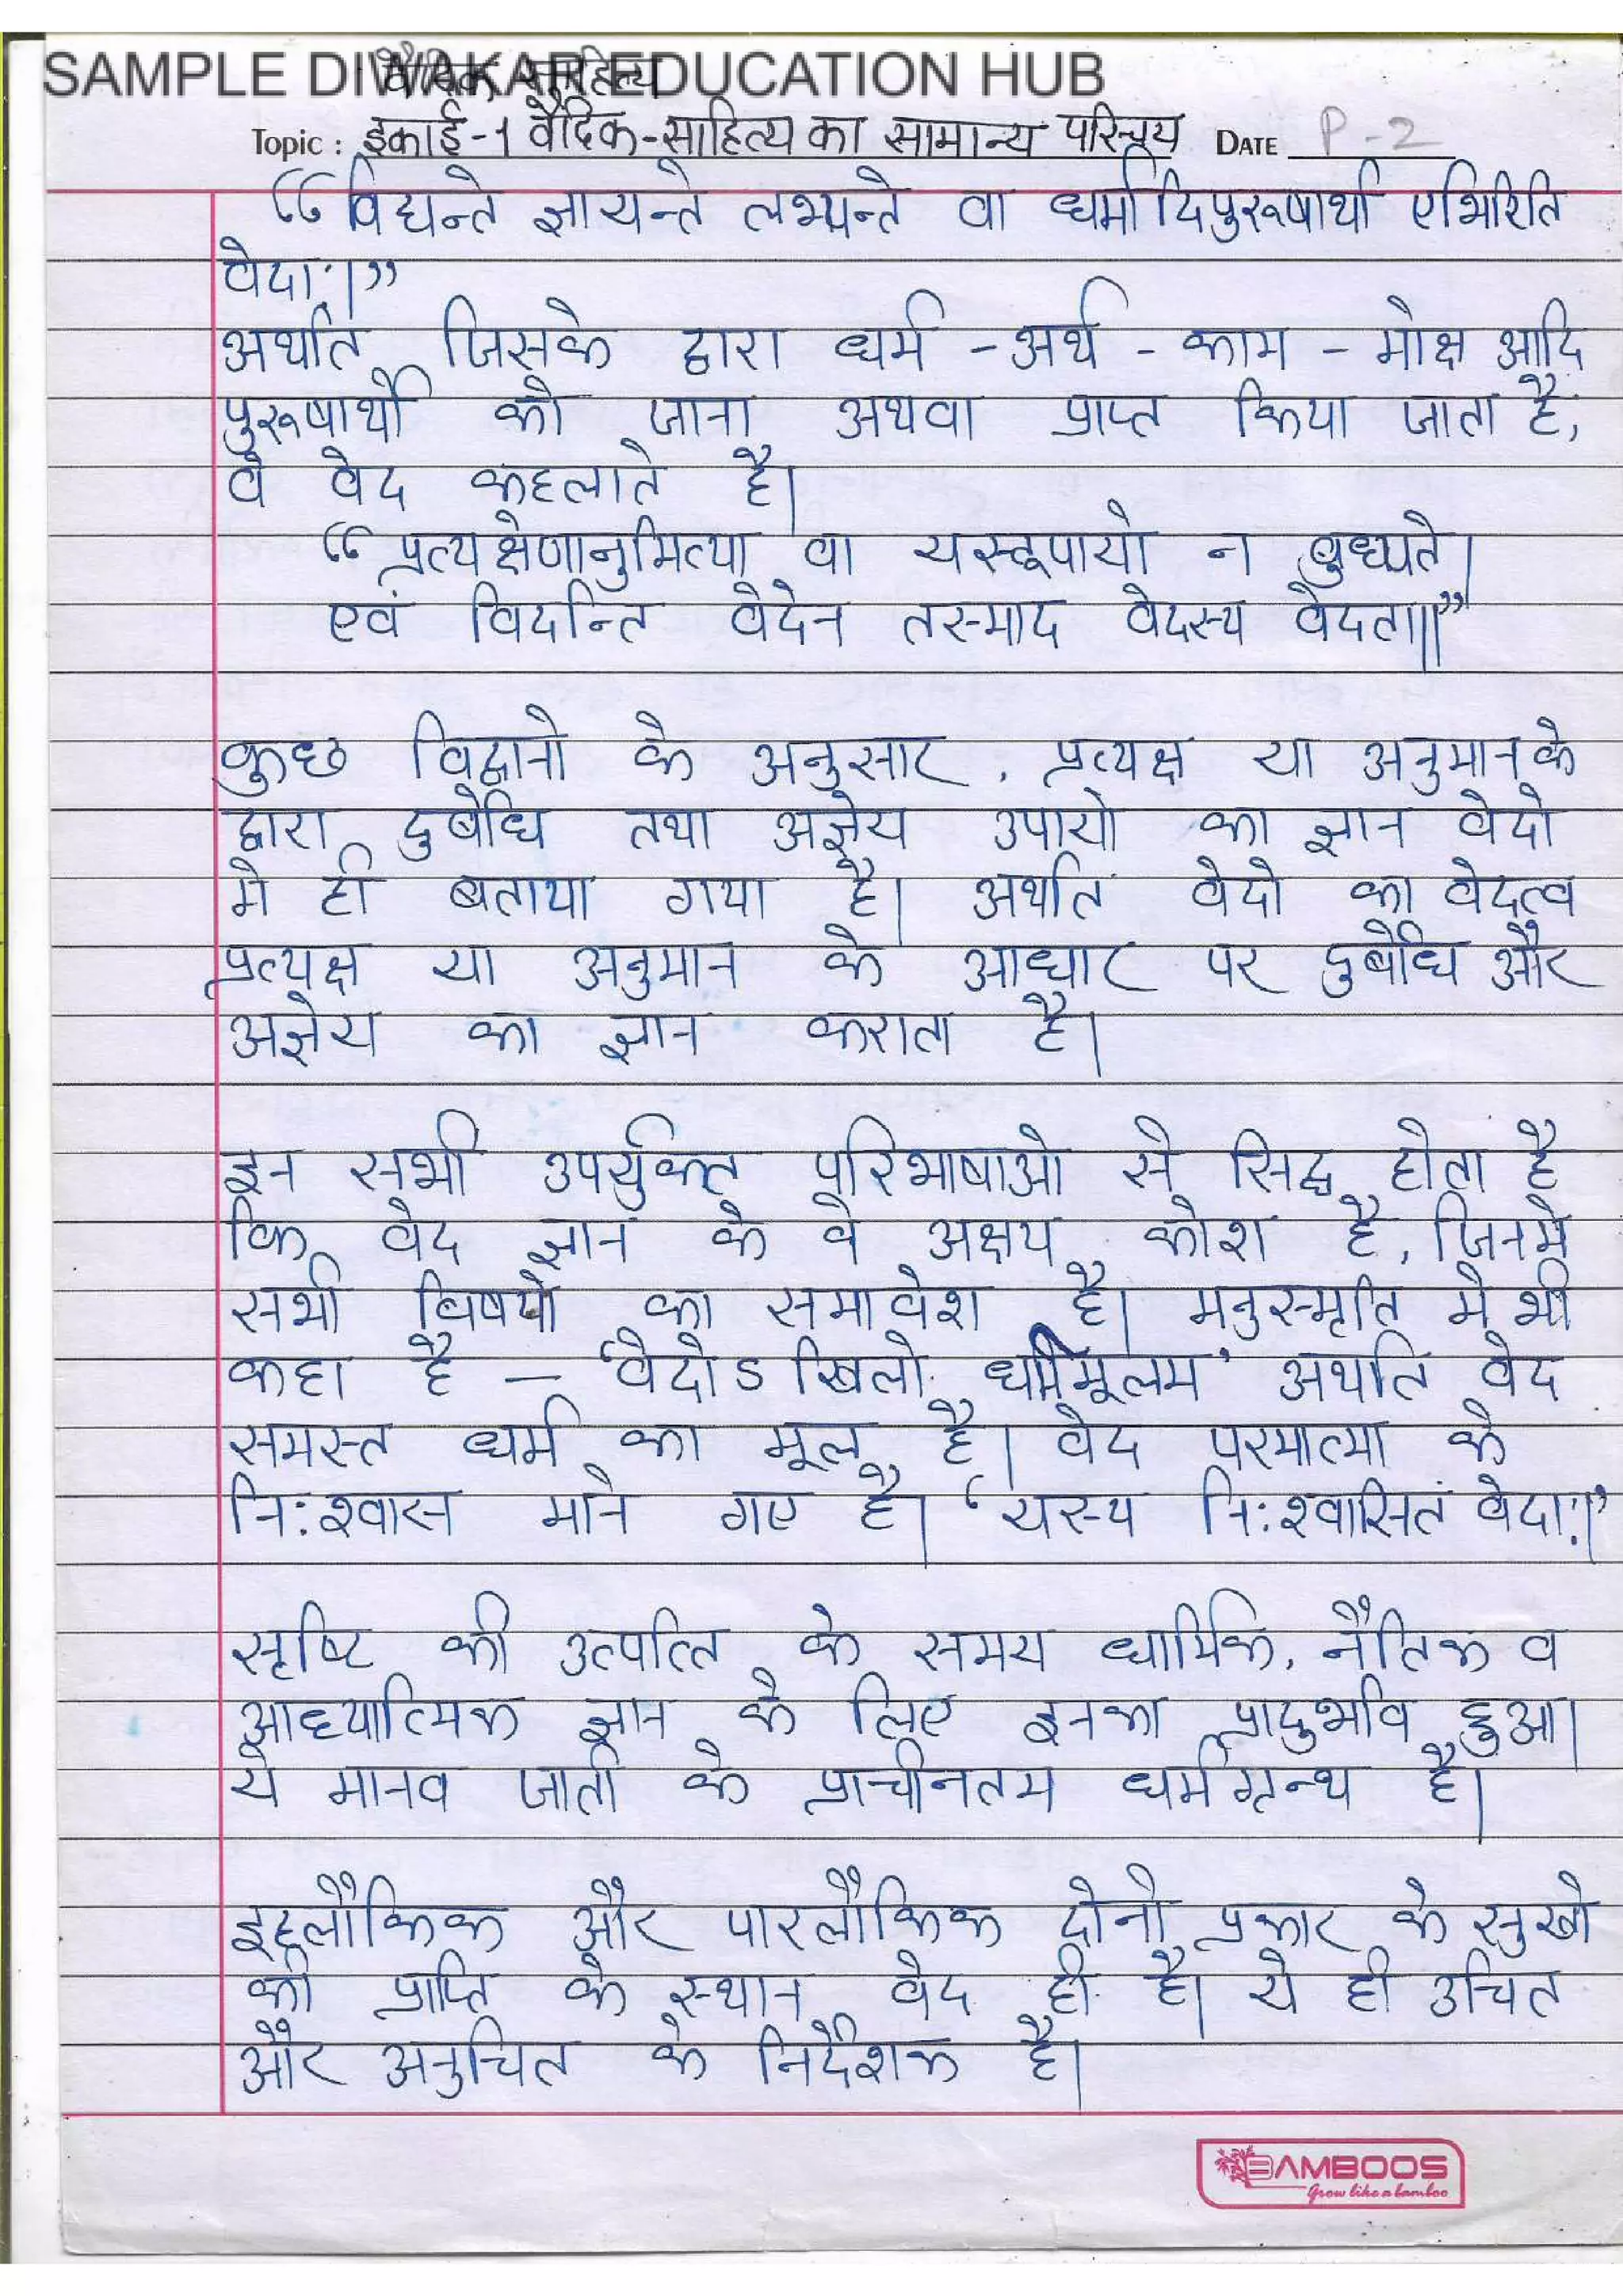 SAMPLE DIWAKAR EDUCATION HUB
वैदिक साहित्य
Topic : इकाई-1 वैदिक-साहित्य का सामान्य परिचय DATE P-2
“विद्यन्ते ज्ञायन्ते लभ्यन्ते वा धर्मादिपुरूषार्था एभिरिति
वेदाः।”
अर्थात जिसके द्वारा धर्म - अर्थ - काम - मोक्ष आदि
पुरूषार्थो को जाना अथवा प्राप्त किया जाता है,
वे वेद कहलाते है।
“प्रत्यक्षेणानुमित्या वा यस्तूपायो न बुध्यते।
एवं विदन्ति वेदेन तस्माद वेदस्य वेदता॥”
कुछ विद्वानो के अनुसार, प्रत्यक्ष या अनुमान के
द्वारा दुर्बोध तथा अज्ञेय उपायो का ज्ञान वेदो
मे ही बताया गया है। अर्थात वेदो का वेदत्व
प्रत्यक्ष या अनुमान के आधार पर दुर्बोध और
अज्ञेय का ज्ञान कराता है।
इन सभी उपर्युक्त परिभाषाओ से सिद्ध होता है
कि वेद ज्ञान के वे अक्षय कोश है, जिनमे
सभी विषयो का समावेश है। मनुस्मृति मे भी
कहा है - ‘वेदोऽखिलो धर्ममूलम’ अर्थात वेद
समस्त धर्म का मूल है। वेद परमात्मा के
निःश्वास माने गए है। ‘यस्य निःश्वासितं वेदाः।’
सृष्टि की उत्पत्ति के समय धार्मिक, नैतिक व
आध्यात्मिक ज्ञान के लिए इनका प्रादुर्भाव हुआ।
ये मानव जाती के प्राचीनतम धर्मग्रन्थ है।
इहलौकिक और पारलौकिक दोनो प्रकार के सुखो
की प्राप्ति के स्थान वेद ही है। ये ही उचित
और अनुचित के निर्देशक है।
BAMBOOS
Grow like a bamboo